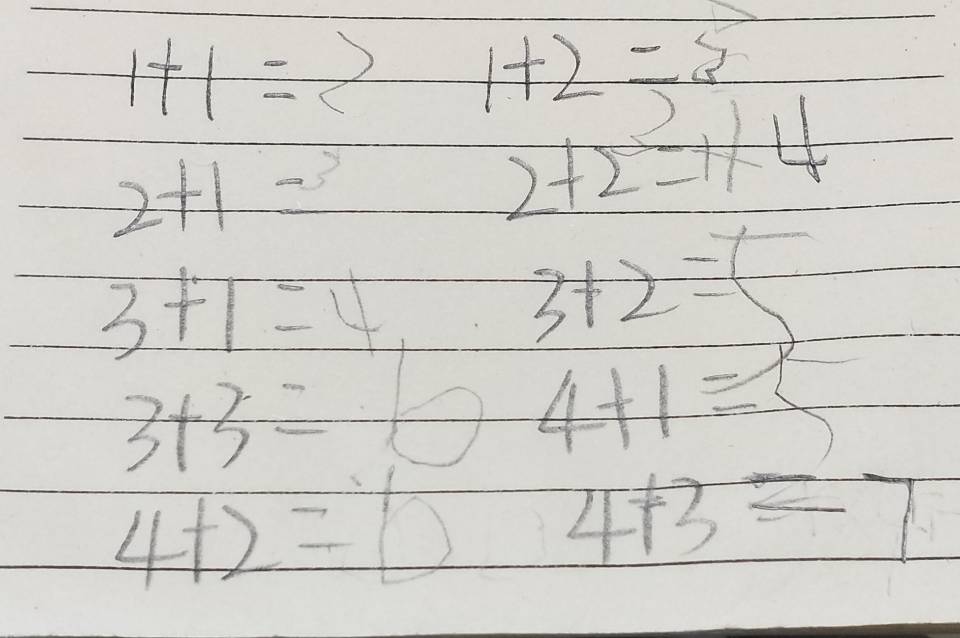 1+1=2 1+2=3
2+1=3 2+2=4 4
3+1=4 3+2=5
3+3=6 4+1=5
4+2=6 4+3=7